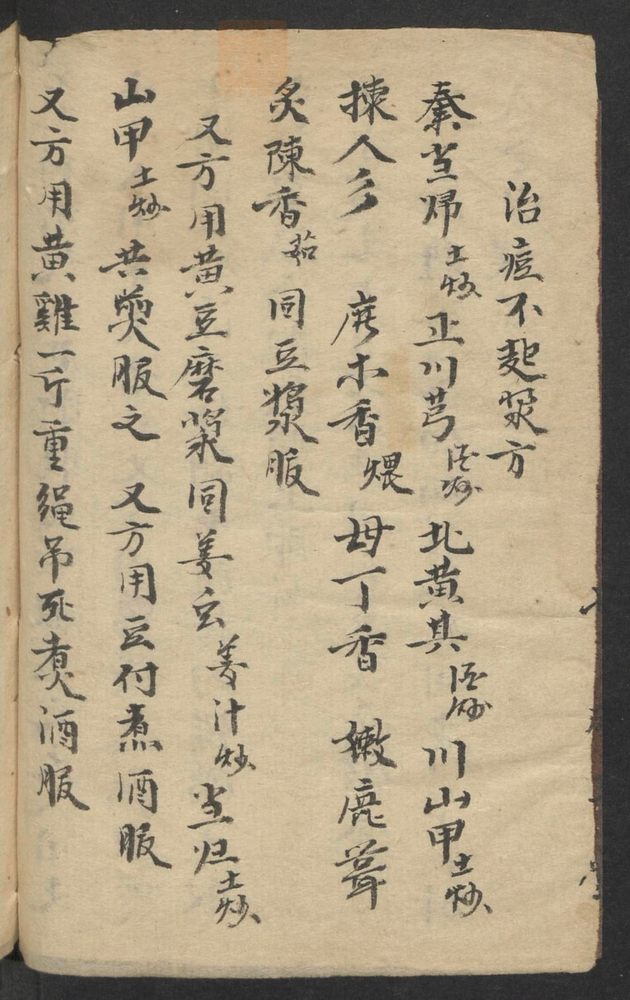 治痘不起漿方
秦当归土炒 正川芎酒炒 北黄其酒炒 川山甲土炒
揀人参 广木香煨 母丁香 嫩鹿茸
炙陳香茹 同豆漿服
又方用黄豆磨漿同姜虫姜汁炒 当归土炒
山甲土炒 共煲服之 又方用豆付煮酒服
又方用黄雞一斤重繩吊死煮酒服